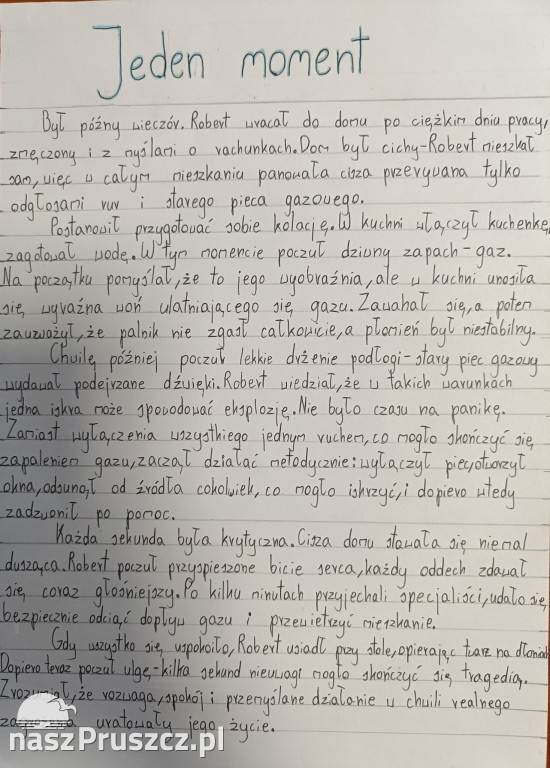 Jeden moment
Był późny wieczór. Robert wracał do domu po ciężkim dniu pracy,
zmęczony i z myślami o rachunkach. Dom był cichy-Robert mieszkał
sam, więc w całym mieszkaniu panowała cisza przerywana tylko
odgłosami rur i starego pieca gazowego.
Postanowił przygotować sobie kolację. W kuchni włączył kuchenkę,
zagotował wodę. W tym momencie poczuł dziwny zapach-gaz.
Na początku pomyślał, że to jego wyobraźnia, ale w kuchni unosiła
się wyraźna woń ulatniającego się gazu. Zawahał się, a potem
zauważył, że palnik nie zgasł całkowicie, a płomień był niestabilny.
Chwilę później poczuł lekkie drżenie podłogi-stary piec gazowy
wydawał podejrzane dźwięki. Robert wiedział, że w takich warunkach
jedna iskra może spowodować eksplozję. Nie było czasu na panikę.
Zamiast wyłączenia wszystkiego jednym ruchem, co mogło skończyć się
zapaleniem gazu, zaczął działać metodycznie: wyłączył piec, otworzył
okna, odsunął od źródła cokolwiek, co mogło iskrzyć, i dopiero wtedy
zadzwonił po pomoc.
Każda sekunda była krytyczna. Cisza domu stawała się niemal
dusząca. Robert poczuł przyspieszone bicie serca, każdy oddech zdawał
się coraz głośniejszy. Po kilku minutach przyjechali specjaliści, udało się
bezpiecznie odciąć dopływ gazu i przewietrzyć mieszkanie.
Gdy wszystko się uspokoiło, Robert usiadł przy stole, opierając twarz na dłoniach.
Dopiero teraz poczuł ulgę-kilka sekund nieuwagi mogło skończyć się tragedią.
Zrozumiał, że rozwaga, spokój i przemyślane działanie w chwili realnego
uratowały jego życie.
naszPruszcz.pl